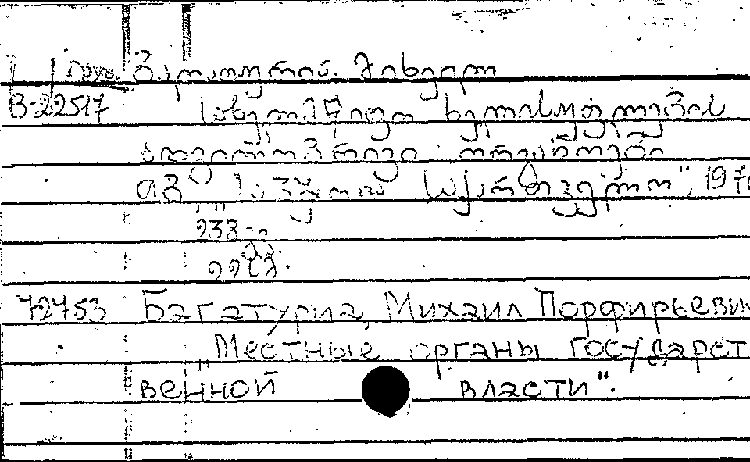 ბაღათურია მიხეილ
B-22517 სახელმწიფო ხელისუფლების
ადგილობრივი ორგანოები
თბ. „საბჭოთა საქართველო", 197
233
72753 Багатуриа, Михаил Порфирьевич
„Местные органы государст
венной власти".